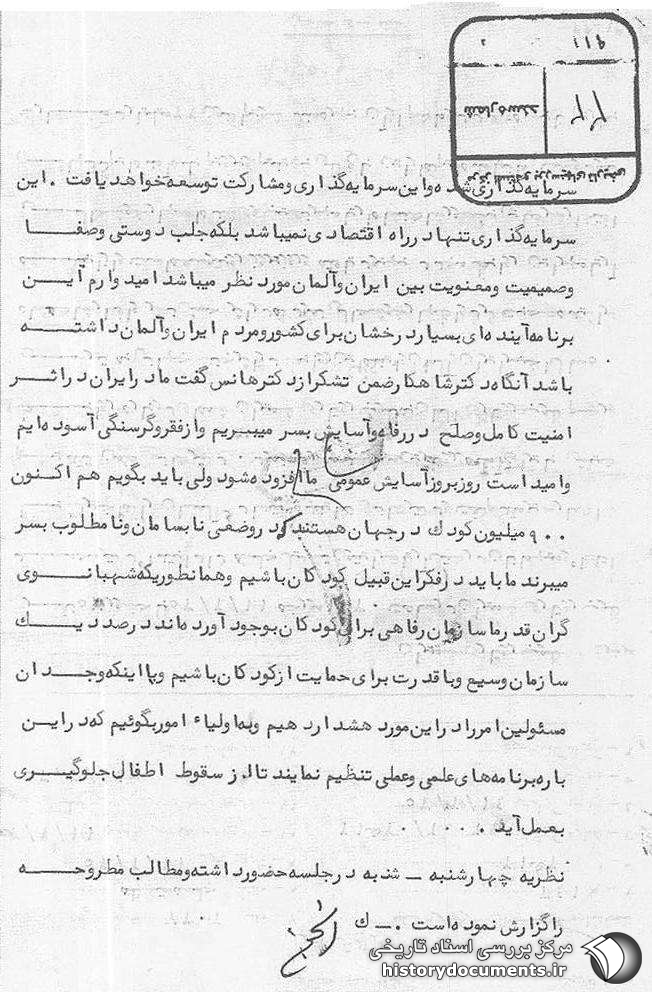 ۹۱۱
۲۲
شماره سند
مرکز اسناد و بررسیهای تاریخی
سرمایه‌گذاری شده و این سرمایه‌گذاری و مشارکت توسعه خواهد یافت . این
سرمایه‌گذاری تنها در راه اقتصادی نمیباشد بلکه جلب دوستی و صفا
و صمیمیت و معنویت بین ایران و آلمان مورد نظر میباشد امید وارم این
برنامه آینده ای بسیار درخشان برای کشور و مردم ایران و آلمان داشته
باشد آنگاه دکتر شاهکار ضمن تشکر از دکتر هانس گفت ما در ایران در اثر
امنیت کامل و صلح در رفاه و آسایش بسر میبریم و از فقر و گرسنگی آسوده ایم
و امید است روز بروز آسایش عمومی ما افزوده شود ولی باید بگویم هم اکنون
۹۰۰ میلیون کودک در جهان هستند که در وضعی نابسامان و نامطلوب بسر
میبرند ما باید در فکر این قبیل کودکان باشیم و همانطوریکه شهبانوی
گران قدر ما سازمان رفاهی برای کودکان بوجود آورده اند در صدد یک
سازمان وسیع و با قدرت برای حمایت از کودکان باشیم و یا اینکه وجدان
مسئولین امر را در این مورد هشدار دهیم و به اولیاء امور بگوئیم که در این
باره برنامه های علمی و عملی تنظیم نمایند تا از سقوط اطفال جلوگیری
بعمل آید .
نظریه چهارشنبه ـ شنبه در جلسه حضور داشته و مطالب مطروحه
را گزارش نموده است . ـ ک
مرکز بررسی اسناد تاریخی
historydocuments.ir